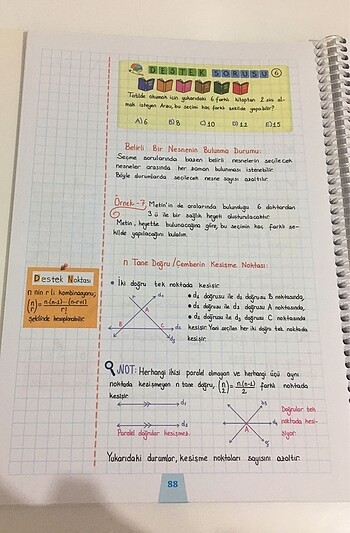 DESTEK SORUSU 6
Tatilde okumak için yukarıdaki 6 farklı kitaptan 2 sini al-
mak isteyen Arzu, bu seçimi kaç farklı şekilde yapabilir?
A) 6 B) 8 C) 10 D) 11 E) 15
Belirli Bir Nesnenin Bulunma Durumu:
Seçme sorularında bazen belirli nesnelerin seçilecek
nesneler arasında her zaman bulunması istenebilir.
Böyle durumlarda seçilecek nesne sayısı azaltılır.
Örnek-7, Metin'in de aralarında bulunduğu 6 doktordan
3 ü ile bir sağlık heyeti oluşturulacaktır.
Metin, heyette bulunacağına göre, bu seçimin kaç farklı şe-
kilde yapılacağını bulalım.
n Tane Doğru / Çemberin Kesişme Noktası:
Destek Noktası
n nin r li kombinasyonu,
(n r) = n(n-1)...(n-r+1) / r!
şeklinde hesaplanabilir.
• İki doğru tek noktada kesişir.
• d₁ doğrusu ile d₂ doğrusu A noktasında,
• d₁ doğrusu ile d₃ doğrusu B noktasında,
• d₂ doğrusu ile d₃ doğrusu C noktasında
kesişir. Yani seçilen her iki doğru tek noktada
kesişir.
A
B C d₃
NOT: Herhangi ikisi paralel olmayan ve herhangi üçü aynı
noktada kesişmeyen n tane doğru, (n 2) = n(n-1) / 2 farklı noktada
kesişir.
d₁
d₂
Paralel doğrular kesişmez.
A
Doğrular tek
noktada kesi-
şiyor.
Yukarıdaki durumlar, kesişme noktaları sayısını azaltır.
88